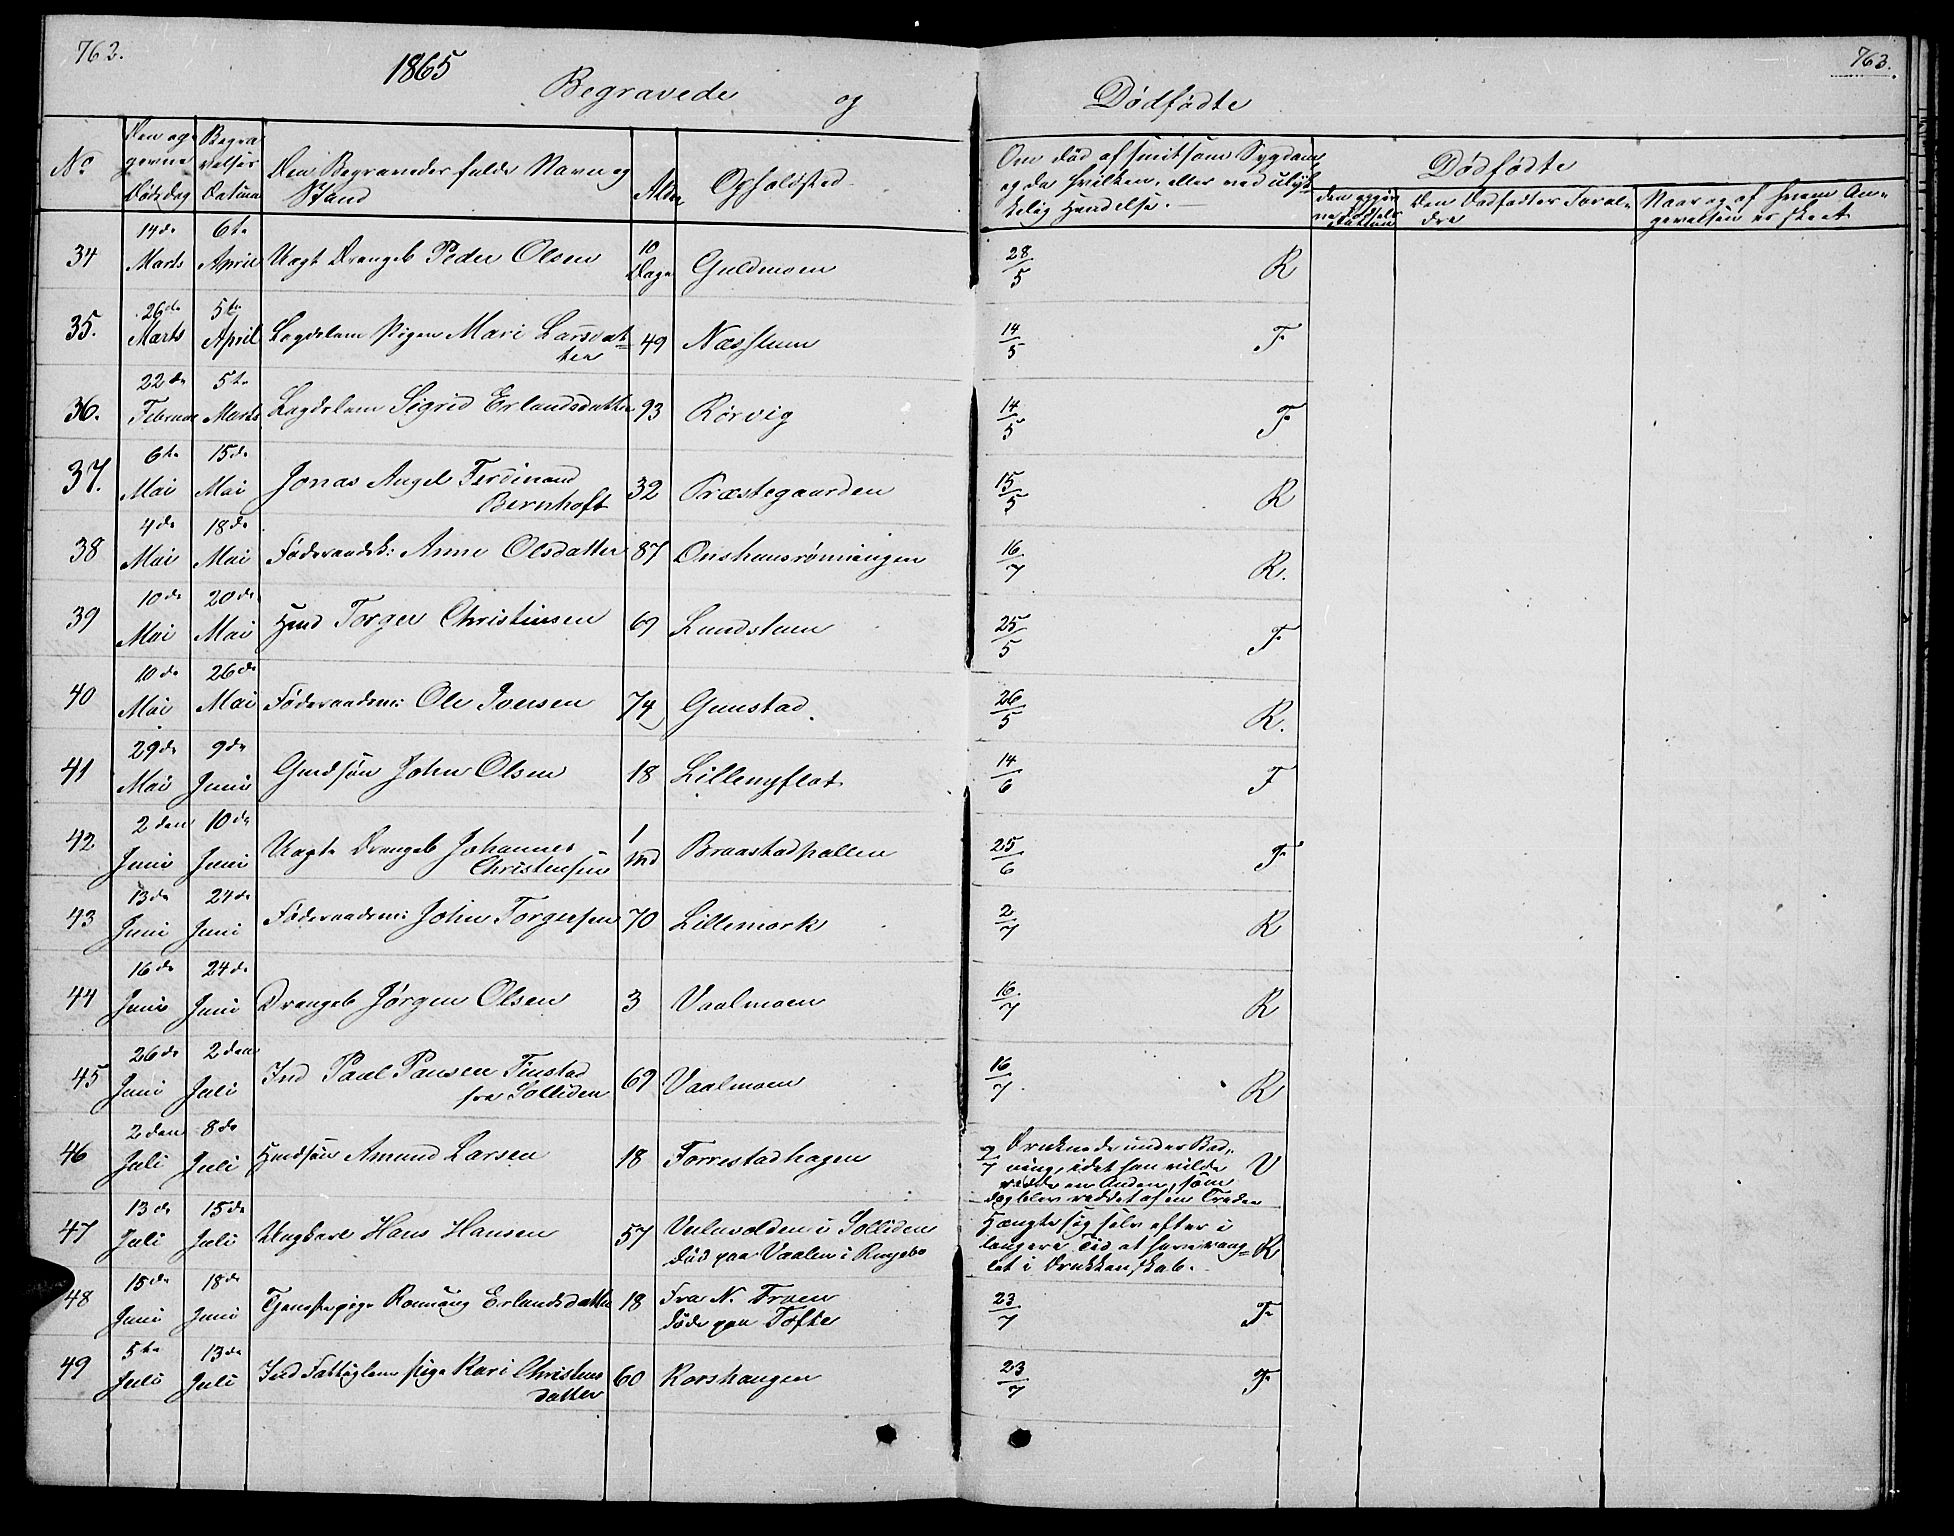 762.
1865
Begravede og
Dødfødte
763.
No
Den opgivne Dødsdag
Begravelses Datum
Den Begravedes fulde Navn og Stand
Alder
Opholdsted
Om død af smitsom Sygdom og da hvilken, eller ved ulykkelig Hendelse.
Dødfødte
den opgivne Fødsels Datum
Den Dødfødtes Forældre
Naar og af hvem Angevelsen er skeet
34 14de Marts 6te April Uægt Drengeb Peder Olsen 10 Dage Guldmoen 28/5 R
35. 26de Marts 5te April Lægdslem Pigen Mari Larsdatter 49 Næsstuen 14/5 F
36. 22de Februar 5te Marts Lægdslem Sigrid Erlandsdatter 93 Rørvig 14/5 F
37. 6te Mai 15de Mai Jonas Angel Ferdinand Bernhoft 32 Præstegaarden 15/5 R
38 4de Mai 18de Mai Føderaadsk: Anne Olsdatter 87 Onshuusrønningen 16/7 R.
39 10de Mai 20de Mai Hmd Torger Christensen 69 Lundstuen 25/5 F
40 10de Mai 26de Mai Føderaadsm: Ole Iversen 74 Gunstad 26/5 R.
41 29de Mai 9de Juni Gmdsøn John Olsen 18 Lillenyflot 14/6 F
42 2den Juni 10de Juni Uægte Drengeb Johannes Christensen 1 Md Braastadhallen 25/6 F
43 13de Juni 24de Juni Føderaadsm: John Torgersen 70 Lillemork 2/7 R
44 16de Juni 24de Juni Drengeb Jørgen Olsen 3 Vaalmoen 16/7 R
45 26de Juni 2den Juli Ind Paul Paulsen Finstad fra Solliden 69 Vaalmoen 16/7 R
46 2den Juli 8de Juli Hmdsøn Amund Larsen 18 Forrestadhagen 9/7 Druknede under Badning, idet han vilde redde en Anden, som dog blev reddet af en Tredie V
47 13de Juli 15de Juli Ungkarl Hans Hansen 57 Vuluvolden i Solliden død paa Vaalen i Ringebo Hængte sig selv efter i længere Tid at have ranglet i Drukkenskab. R
48 15de Juni 18de Juni Tjenstepige Rønnaug Erlandsdatter 18 Fra N. Troen døde paa Tofte 23/7 F
49 5te Juli 13de Juli Ind Fattiglem Pige Kari Christensdatter 60 Korshaugen 23/7 F